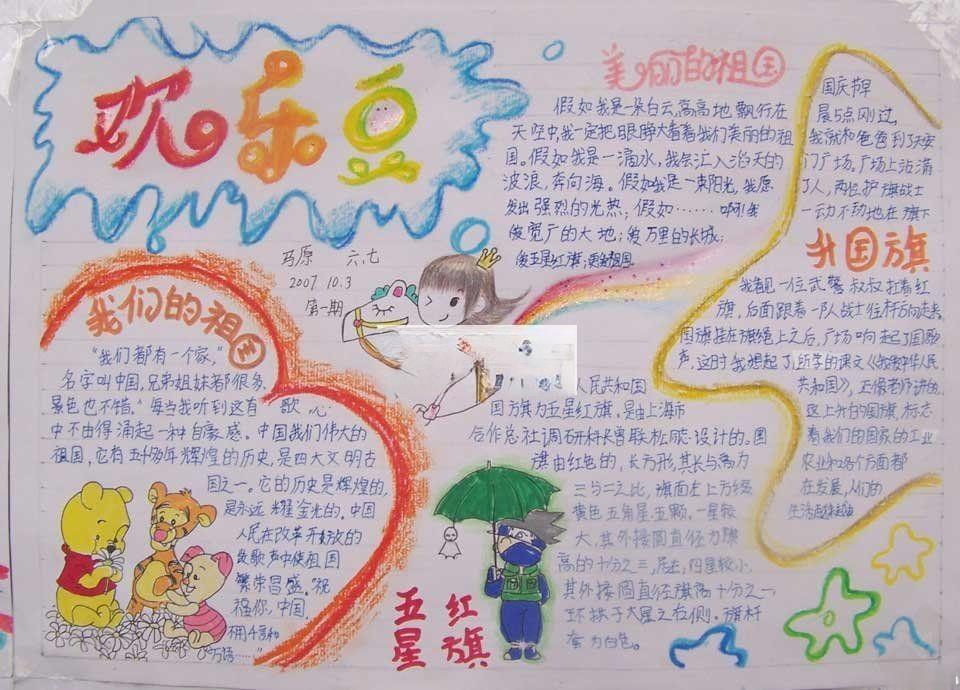 欢乐豆
马原 六.七
2007.10.3
第一期
美丽的祖国
假如我是一朵白云,高高地飘行在
天空中,我一定把眼睁大看着我们美丽的祖
国。假如我是一滴水,我会汇入滔天的
波浪,奔向海。假如我是一束阳光,我愿
发出强烈的光热;假如……啊!我
爱宽广的大地;爱万里的长城;
爱五星红旗;更爱祖国
升国旗
国庆节早
晨5点刚过,
我就和爸爸到了天安
门广场。广场上站满
了人,两位护旗战士
一动不动地在旗下
我看见一位武警叔叔扛着红
旗,后面跟着一队战士往杆方向走来
国旗挂在旗绳上之后,广场响起了国歌
声,这时我想起了所学的课文
共和国》,正像老师讲的
这上升的国旗标志
着我们的国家的工业
农业和各个方面都
在发展,人们的
生活越来越
我们的祖国
“我们都有一个家,
名字叫中国,兄弟姐妹都很多,
景色也不错。”每当我听到这首歌,心
中不由得涌起一种自豪感。中国我们伟大的
祖国,它有五千多年辉煌的历史,是四大文明古
国之一。它的历史是辉煌的,
是永远耀金光的。中国
人民在改革开放的
歌声中使祖国
繁荣昌盛。祝
福你,中国。
万语……”
五星红旗
人民共和国
国旗为五星红旗,是由上海市
合作总社调研科长曾联松同志设计的。国
旗由红色的,长方形,其长与高为
三与二之比,旗面左上方缀
黄色五角星五颗。一星较
大,其外接圆直径为旗
高的十分之三,居左,四星较小,
其外接圆直径旗高十分之一
环拱于大星之右侧。旗杆
套为白色。